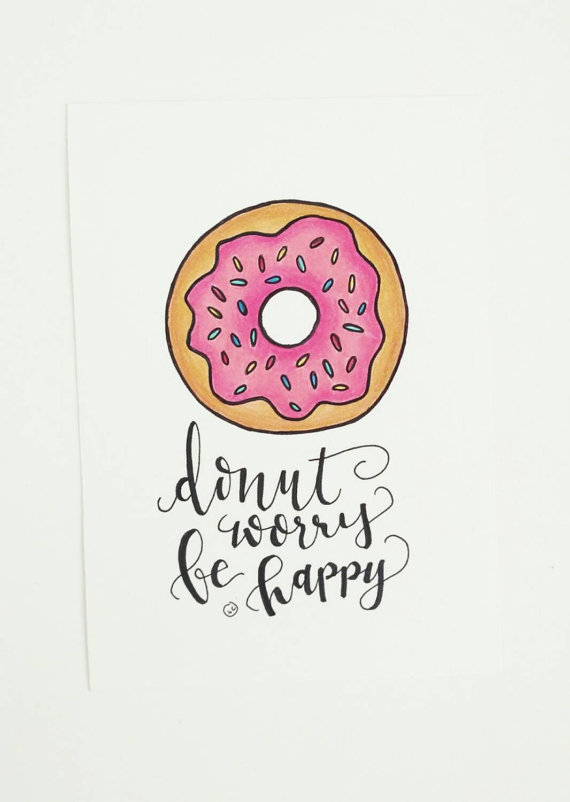 donut
worry
be happy